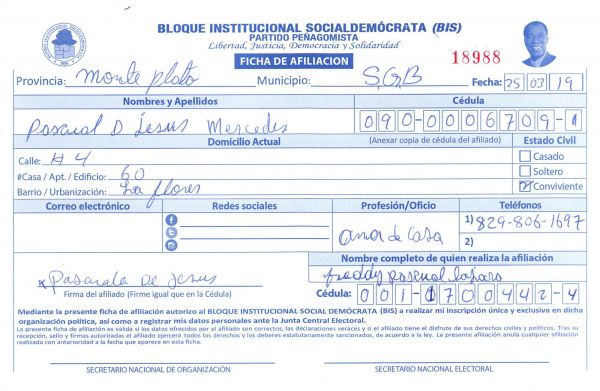 BLOQUE INSTITUCIONAL SOCIALDEMÓCRATA (BIS)
PARTIDO PEÑAGOMISTA
Libertad, Justicia, Democracia y Solidaridad
FICHA DE AFILIACION
18988
Provincia: Monte plata Municipio: S.G.B Fecha: 25 03 19
Nombres y Apellidos Cédula
Pascual D Jesus Mercedes 090-0006709-1
Domicilio Actual (Anexar copia de cédula del afiliado) Estado Civil
Calle: # 4 Casado
#Casa / Apt. / Edificio: 60 Soltero
Barrio / Urbanización: La flores Conviviente
Correo electrónico Redes sociales Profesión/Oficio Teléfonos
1) 829-806-1697
Ama de Casa
2)
Nombre completo de quien realiza la afiliación
Pascuala De Jesus freddy pascual
Firma del afiliado (Firme igual que en la Cédula) Cédula: 001-1700442-4
Mediante la presente ficha de afiliación autorizo al BLOQUE INSTITUCIONAL SOCIAL DEMÓCRATA (BIS) a realizar mi inscripción única y exclusiva en dicha
organización política, así como a registrar mis datos personales ante la Junta Central Electoral.
La presente ficha de afiliación es válida si los datos ofrecidos por el afiliado son correctos, las declaraciones veraces y si el afiliado tiene el disfrute de sus derechos civiles y políticos. Tras su
recepción, sello y firmas autorizadas el afiliado ejercerá todos los derechos y los deberes estatutariamente sancionados, de acuerdo a la ley. La presente afiliación anula cualquier afiliación
realizada con anterioridad a la fecha que aparece en esta ficha.
SECRETARIO NACIONAL DE ORGANIZACIÓN SECRETARIO NACIONAL ELECTORAL